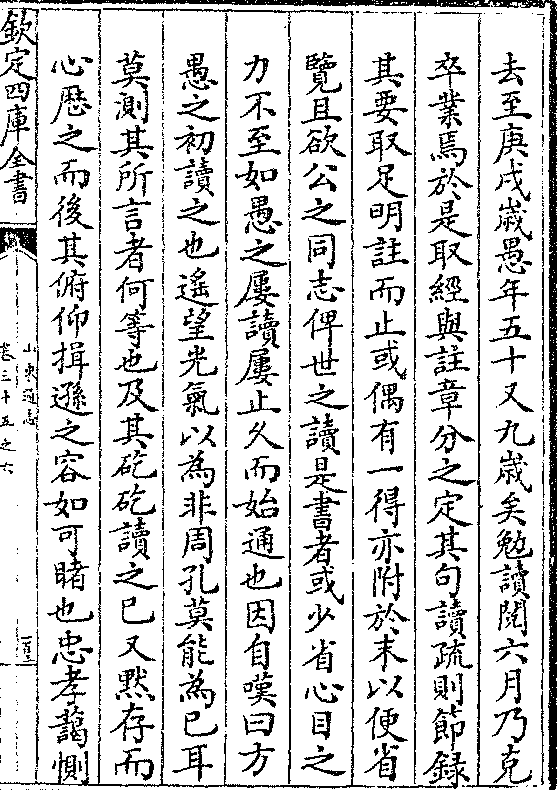 去至庚戌歲愚年五十又九歲矣勉讀閱六月乃克
卒業焉於是取經與註章分之定其句讀疏則節錄
其要取足明註而止或偶有一得亦附於末以便省
覽且欲公之同志俾世之讀是書者或少省心目之
力不至如愚之屢讀屢止久而始通也因自嘆曰方
愚之初讀之也遙望光氣以為非周孔莫能為已耳
莫測其所言者何等也及其矻矻讀之已又默存而
心歷之而後其俯仰揖遜之容如可睹也忠孝藹惻
欽定四庫全書
山東通志
卷三十五之六